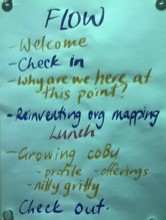 FLOW
-Welcome
-Check in
-Why are we here at
this point?
-Reinventing org mapping
Lunch
-Growing CoBu
-profile -offerings
-nitty gritty
Check out.